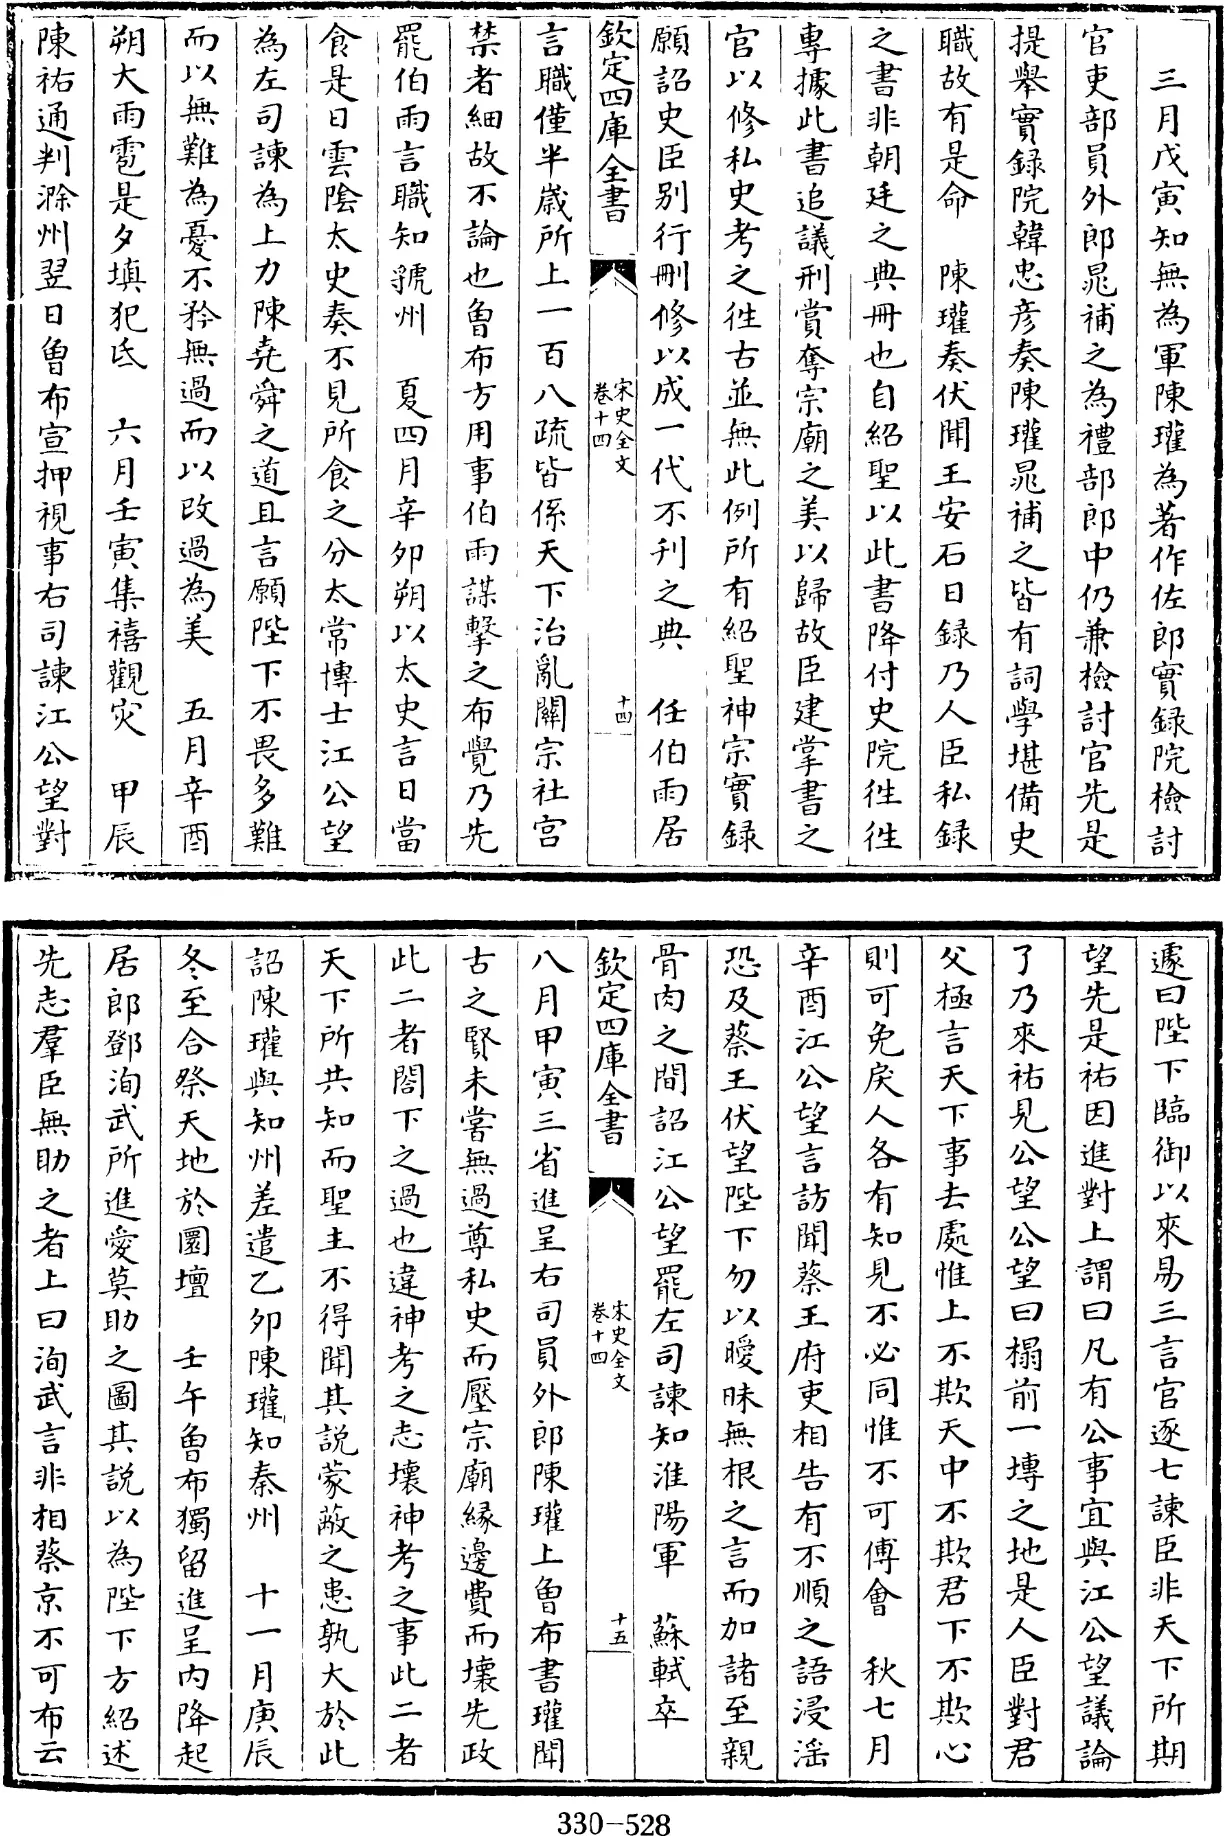 三月戊寅知無為軍陳瓘為著作佐郎實録院檢討
官吏部員外郎晁補之為禮部郎中仍兼檢討官先是
提舉實録院韓忠彦奏陳瓘晁補之皆有詞學堪備史
職故有是命　陳瓘奏伏聞王安石日録乃人臣私録
之書非朝廷之典冊也自紹聖以此書降付史院徃徃
專據此書追議刑賞奪宗廟之美以歸故臣建掌書之
官以修私史考之徃古並無此例所有紹聖神宗實録
願詔史臣别行刪修以成一代不刋之典　任伯雨居
欽定四庫全書
宋史全文
卷十四
十四
言職僅半嵗所上一百八疏皆係天下治亂關宗社宫
禁者細故不論也曾布方用事伯雨謀擊之布覺乃先
罷伯雨言職知虢州　夏四月辛夘朔以太史言日當
食是日雲陰太史奏不見所食之分太常博士江公望
為左司諫為上力陳堯舜之道且言願陛下不畏多難
而以無難為憂不矜無過而以改過為美　五月辛酉
朔大雨雹是夕填犯氐　六月壬寅集禧觀灾　甲辰
陳祐通判滁州翌日曾布宣押視事右司諫江公望對
遽曰陛下臨御以來易三言官逐七諫臣非天下所期
望先是祐因進對上謂曰凡有公事宜與江公望議論
了乃來祐見公望公望曰榻前一塼之地是人臣對君
父極言天下事去處惟上不欺天中不欺君下不欺心
則可免戾人各有知見不必同惟不可傅會　秋七月
辛酉江公望言訪聞蔡王府吏相告有不順之語浸滛
恐及蔡王伏望陛下勿以曖昧無根之言而加諸至親
骨肉之間詔江公望罷左司諫知淮陽軍　蘇軾卒
欽定四庫全書
宋史全文
卷十四
十五
八月甲寅三省進呈右司員外郎陳瓘上曾布書瓘聞
古之賢未嘗無過尊私史而壓宗廟緣邊費而壞先政
此二者閤下之過也違神考之志壞神考之事此二者
天下所共知而聖主不得聞其説蒙蔽之患孰大於此
詔陳瓘與知州差遣乙夘陳瓘知泰州　十一月庚辰
冬至合祭天地於圜壇　壬午曾布獨留進呈内降起
居郎鄧洵武所進愛莫助之圖其説以為陛下方紹述
先志羣臣無助之者上曰洵武言非相蔡京不可布云
330-528